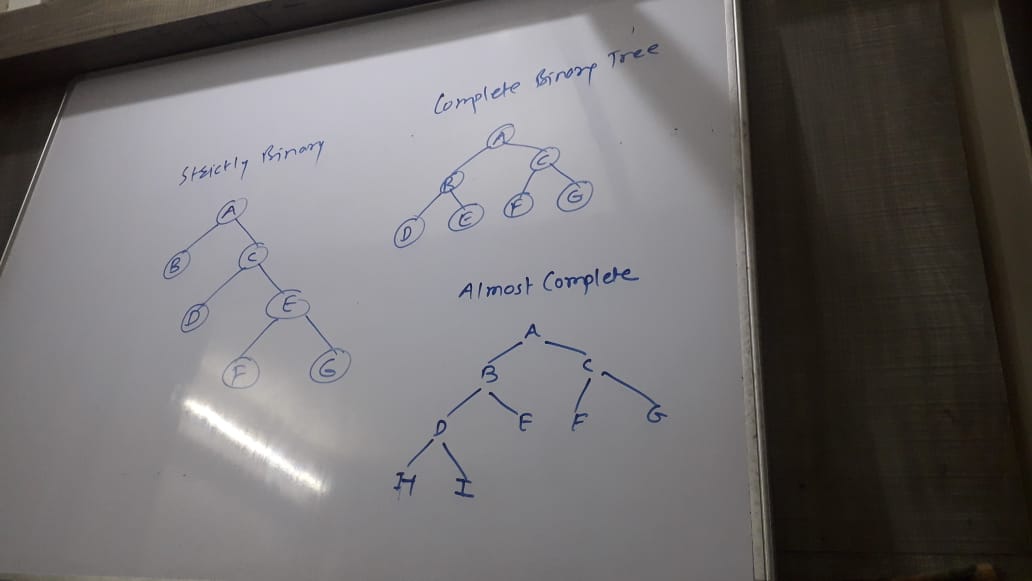 Strictly Binary
A
B C
D E
F G
Complete Binary Tree
A
B C
D E F G
Almost Complete
A
B C
D E F G
H I